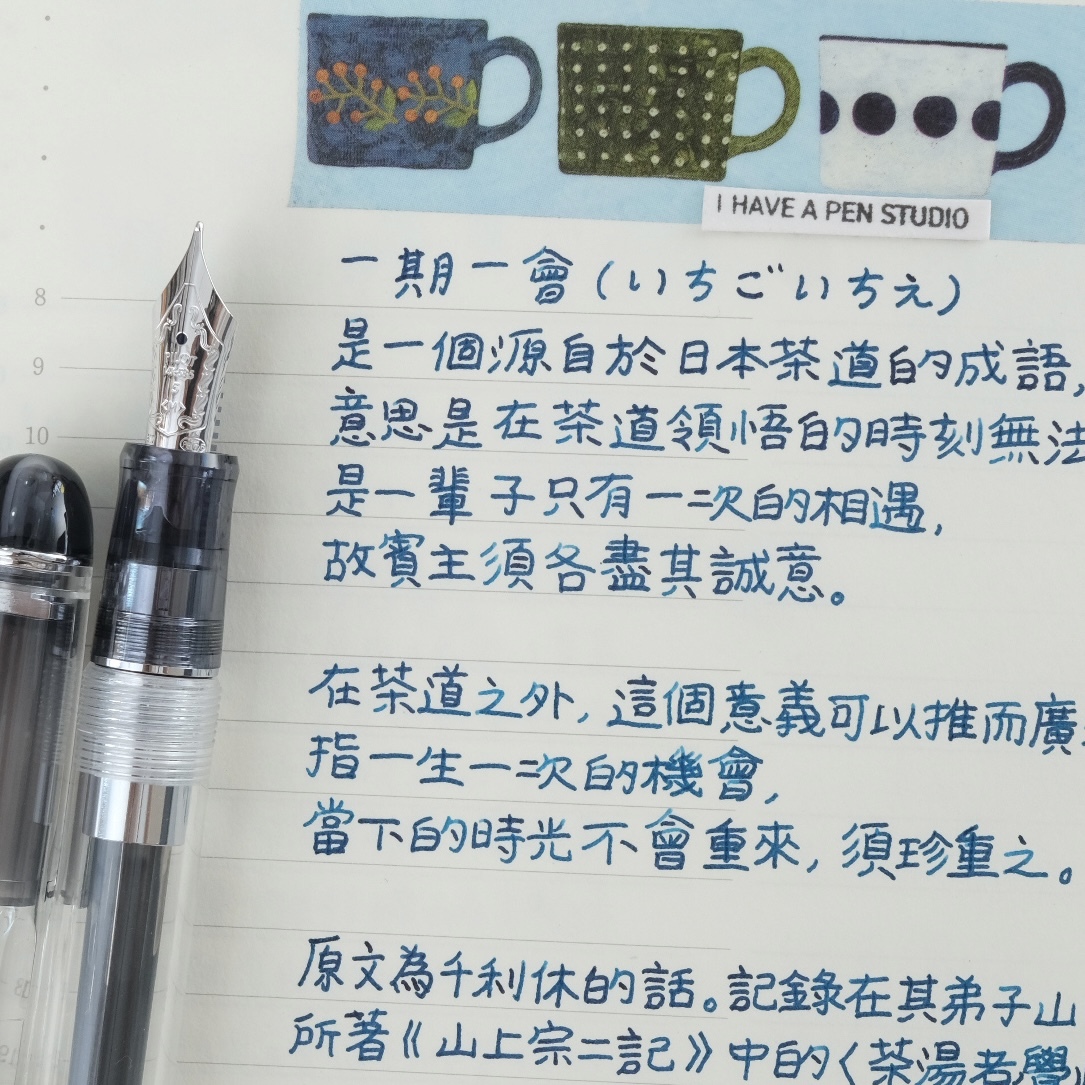 I HAVE A PEN STUDIO
一期一會(いちごいちえ)
是一個源自於日本茶道的成語,
意思是在茶道領悟的時刻無法
是一輩子只有一次的相遇,
故賓主須各盡其誠意。
在茶道之外,這個意義可以推而廣
指一生一次的機會,
當下的時光不會重來,須珍重之。
原文為千利休的話。記錄在其弟子山
所著《山上宗二記》中的〈茶湯者學
8
9
10